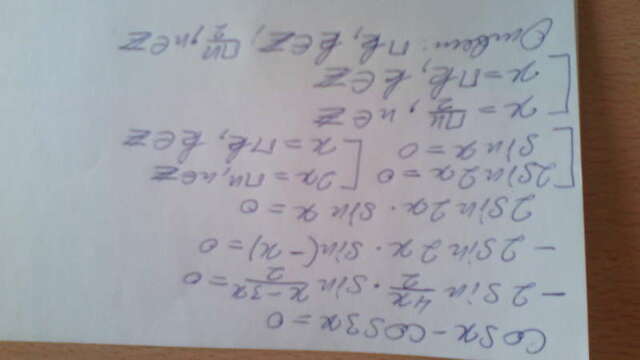 cosx - cos3x = 0
-2sin 4x/2 · sin x-3x/2 = 0
-2sin2x · sin(-x) = 0
2sin2x · sinx = 0
[2sin2x = 0 [2x = πn, n∈Z
[sinx = 0 [x = πk, k∈Z
[x = πn/2, n∈Z
[x = πk, k∈Z
Ответ: πk, k∈Z, πn/2, n∈Z